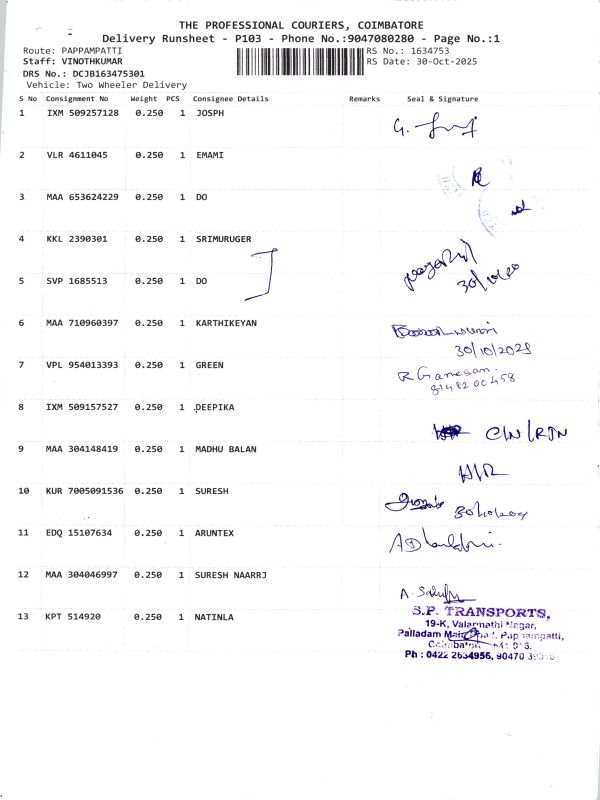 THE PROFESSIONAL COURIERS, COIMBATORE
Delivery Runsheet - P103 - Phone No.:9047080280 - Page No.:1
Route: PAPPAMPATTI RS No.: 1634753
Staff: VINOTHKUMAR RS Date: 30-Oct-2025
DRS No.: DCJB163475301
Vehicle: Two Wheeler Delivery
S No Consignment No Weight PCS Consignee Details Remarks Seal & Signature
1 IXM 509257128 0.250 1 JOSPH
2 VLR 4611045 0.250 1 EMAMI
3 MAA 653624229 0.250 1 DO
4 KKL 2390301 0.250 1 SRIMURUGER
5 SVP 1685513 0.250 1 DO
6 MAA 710960397 0.250 1 KARTHIKEYAN
30/10/2025
7 VPL 954013393 0.250 1 GREEN R Ganesan
8148200458
8 IXM 509157527 0.250 1 DEEPIKA
C/N/RTN
9 MAA 304148419 0.250 1 MADHU BALAN
10 KUR 7005091536 0.250 1 SURESH
11 EDQ 15107634 0.250 1 ARUNTEX
12 MAA 304046997 0.250 1 SURESH NAARRJ
13 KPT 514920 0.250 1 NATINLA
S.P. TRANSPORTS,
19-K, Valarmathi Nagar,
Palladam Main Road, Pappampatti,
Coimbatore
Ph : 0422 2634956, 90470